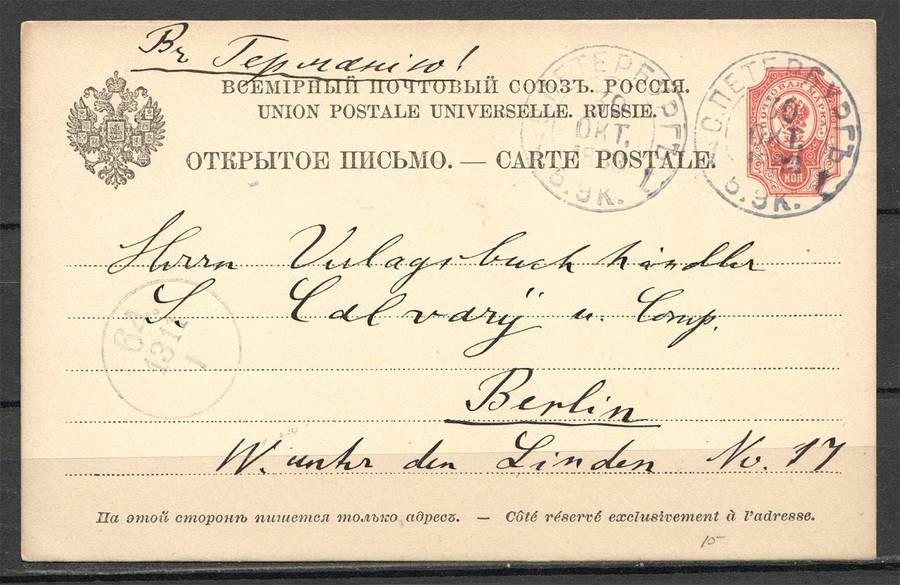 Въ Германію!
ВСЕМІРНЫЙ ПОЧТОВЫЙ СОЮЗЪ. РОССІЯ.
UNION POSTALE UNIVERSELLE. RUSSIE.
ОТКРЫТОЕ ПИСЬМО. — CARTE POSTALE.
С.ПЕТЕРБУРГЪ
10
ОКТ.
5. ЭК. 1
С.ПЕТЕРБУРГЪ
10
ОКТ.
5. ЭК. 1
ПОЧТОВАЯ МАРКА
КОП
Herrn Verlagsbuchhändler
S. Calvarÿ u. Comp.
Berlin
W. unter den Linden No. 17
На этой сторонѣ пишется только адресъ. — Côté réservé exclusivement à l'adresse.
15